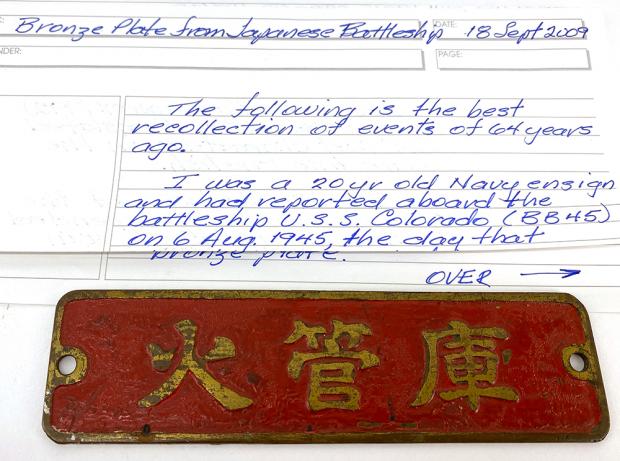 Bronze Plate from Japanese Battleship DATE: 18 Sept 2009
NDER: PAGE:
The following is the best
recollection of events of 64 years
ago.
I was a 20 yr old Navy ensign
and had reported aboard the
battleship U.S.S. Colorado (BB45)
on 6 Aug. 1945, the day that
bronze plate.
OVER →
火管庫